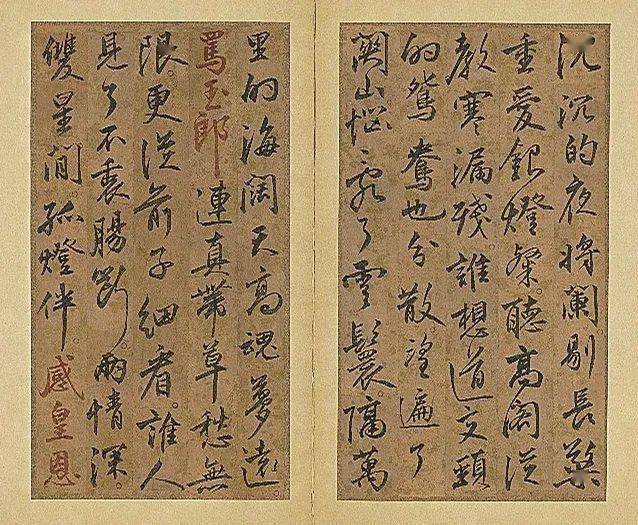 沉沉的夜將闌。剔長檠
重愛銀燈粲。聽高閣從
教寒漏殘。誰想道交頸
的鴛鴦也分散。望遍了
關山。惱亂了雲鬟。隔萬
里的海闊天高魂夢遠。
罵玉郎連真帶草愁無
限。更從前子細看。誰人
見了不衷腸斷。兩情深。
雙星間。孤燈伴。感皇恩